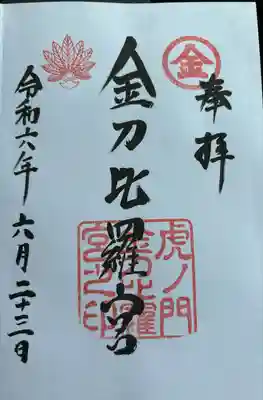 奉拝
金
金刀比羅宮
虎ノ門
金刀比羅
宮之印
令和六年 六月二十三日